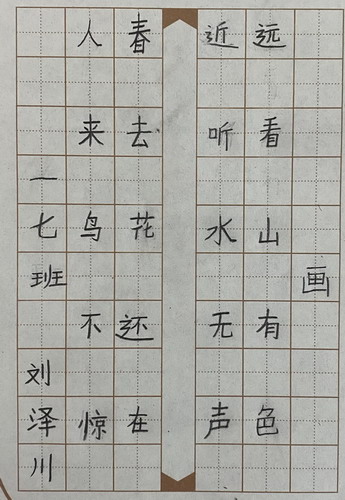 画
远看山有色
近听水无声
春去花还在
人来鸟不惊
一七班刘泽川